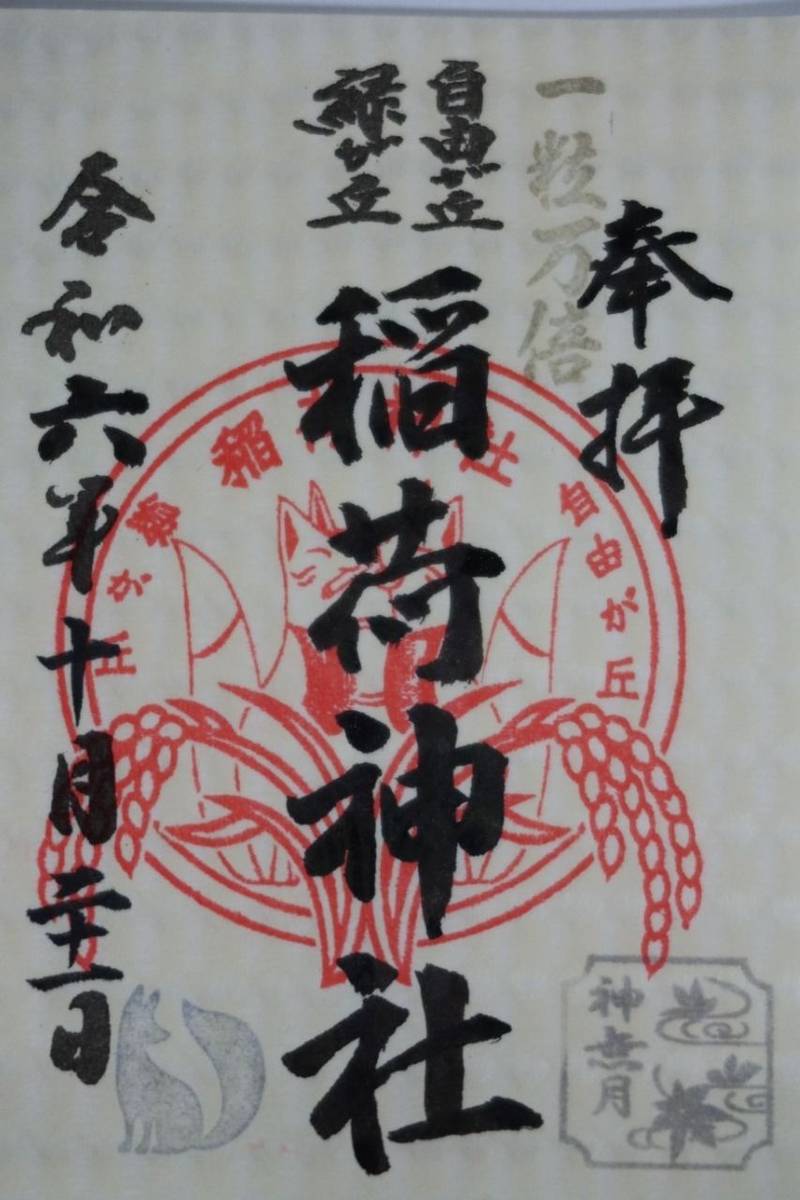 奉拝
一粒万倍
自由が丘
緑が丘
稲荷神社
令和六年十月二十一日
自由が丘
稲荷神社
緑が丘
神無月